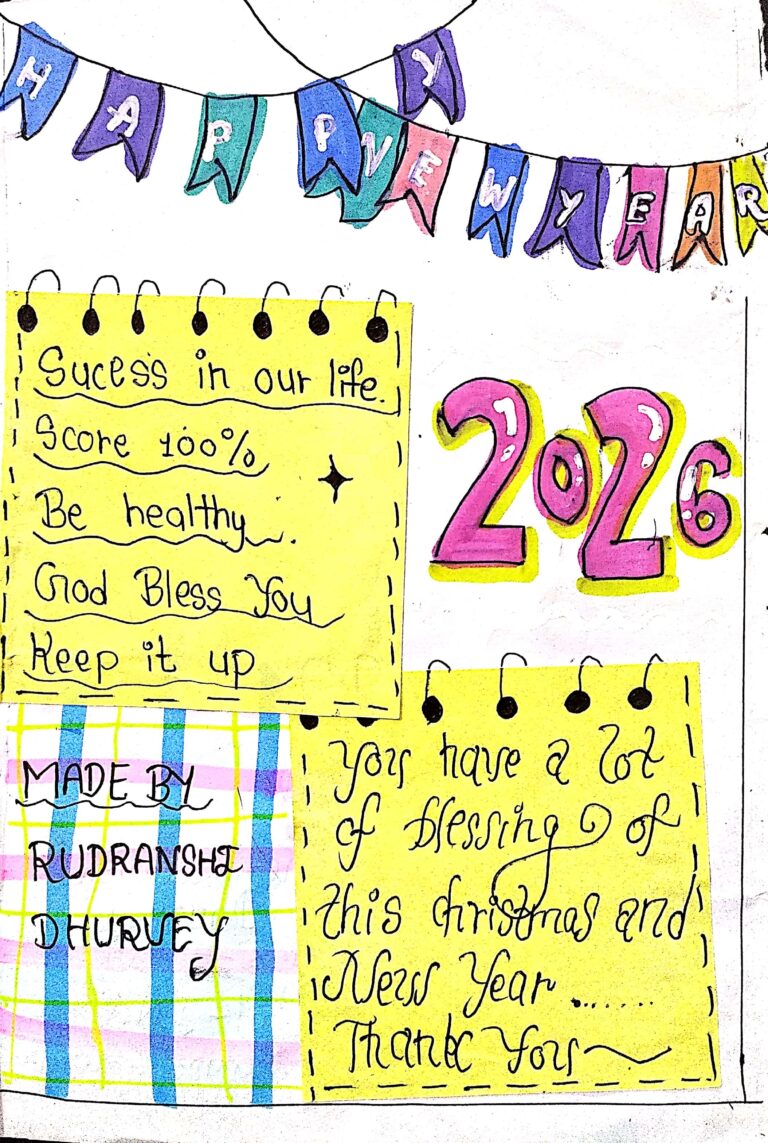 HAPPY
NEW YEAR
Sucess in our life.
Score 100%
Be healthy.
God Bless You
Keep it up
2026
MADE BY
RUDRANSHI
DHURVEY
You have a lot
of blessing of
this christmas and
New Year .......
Thank You